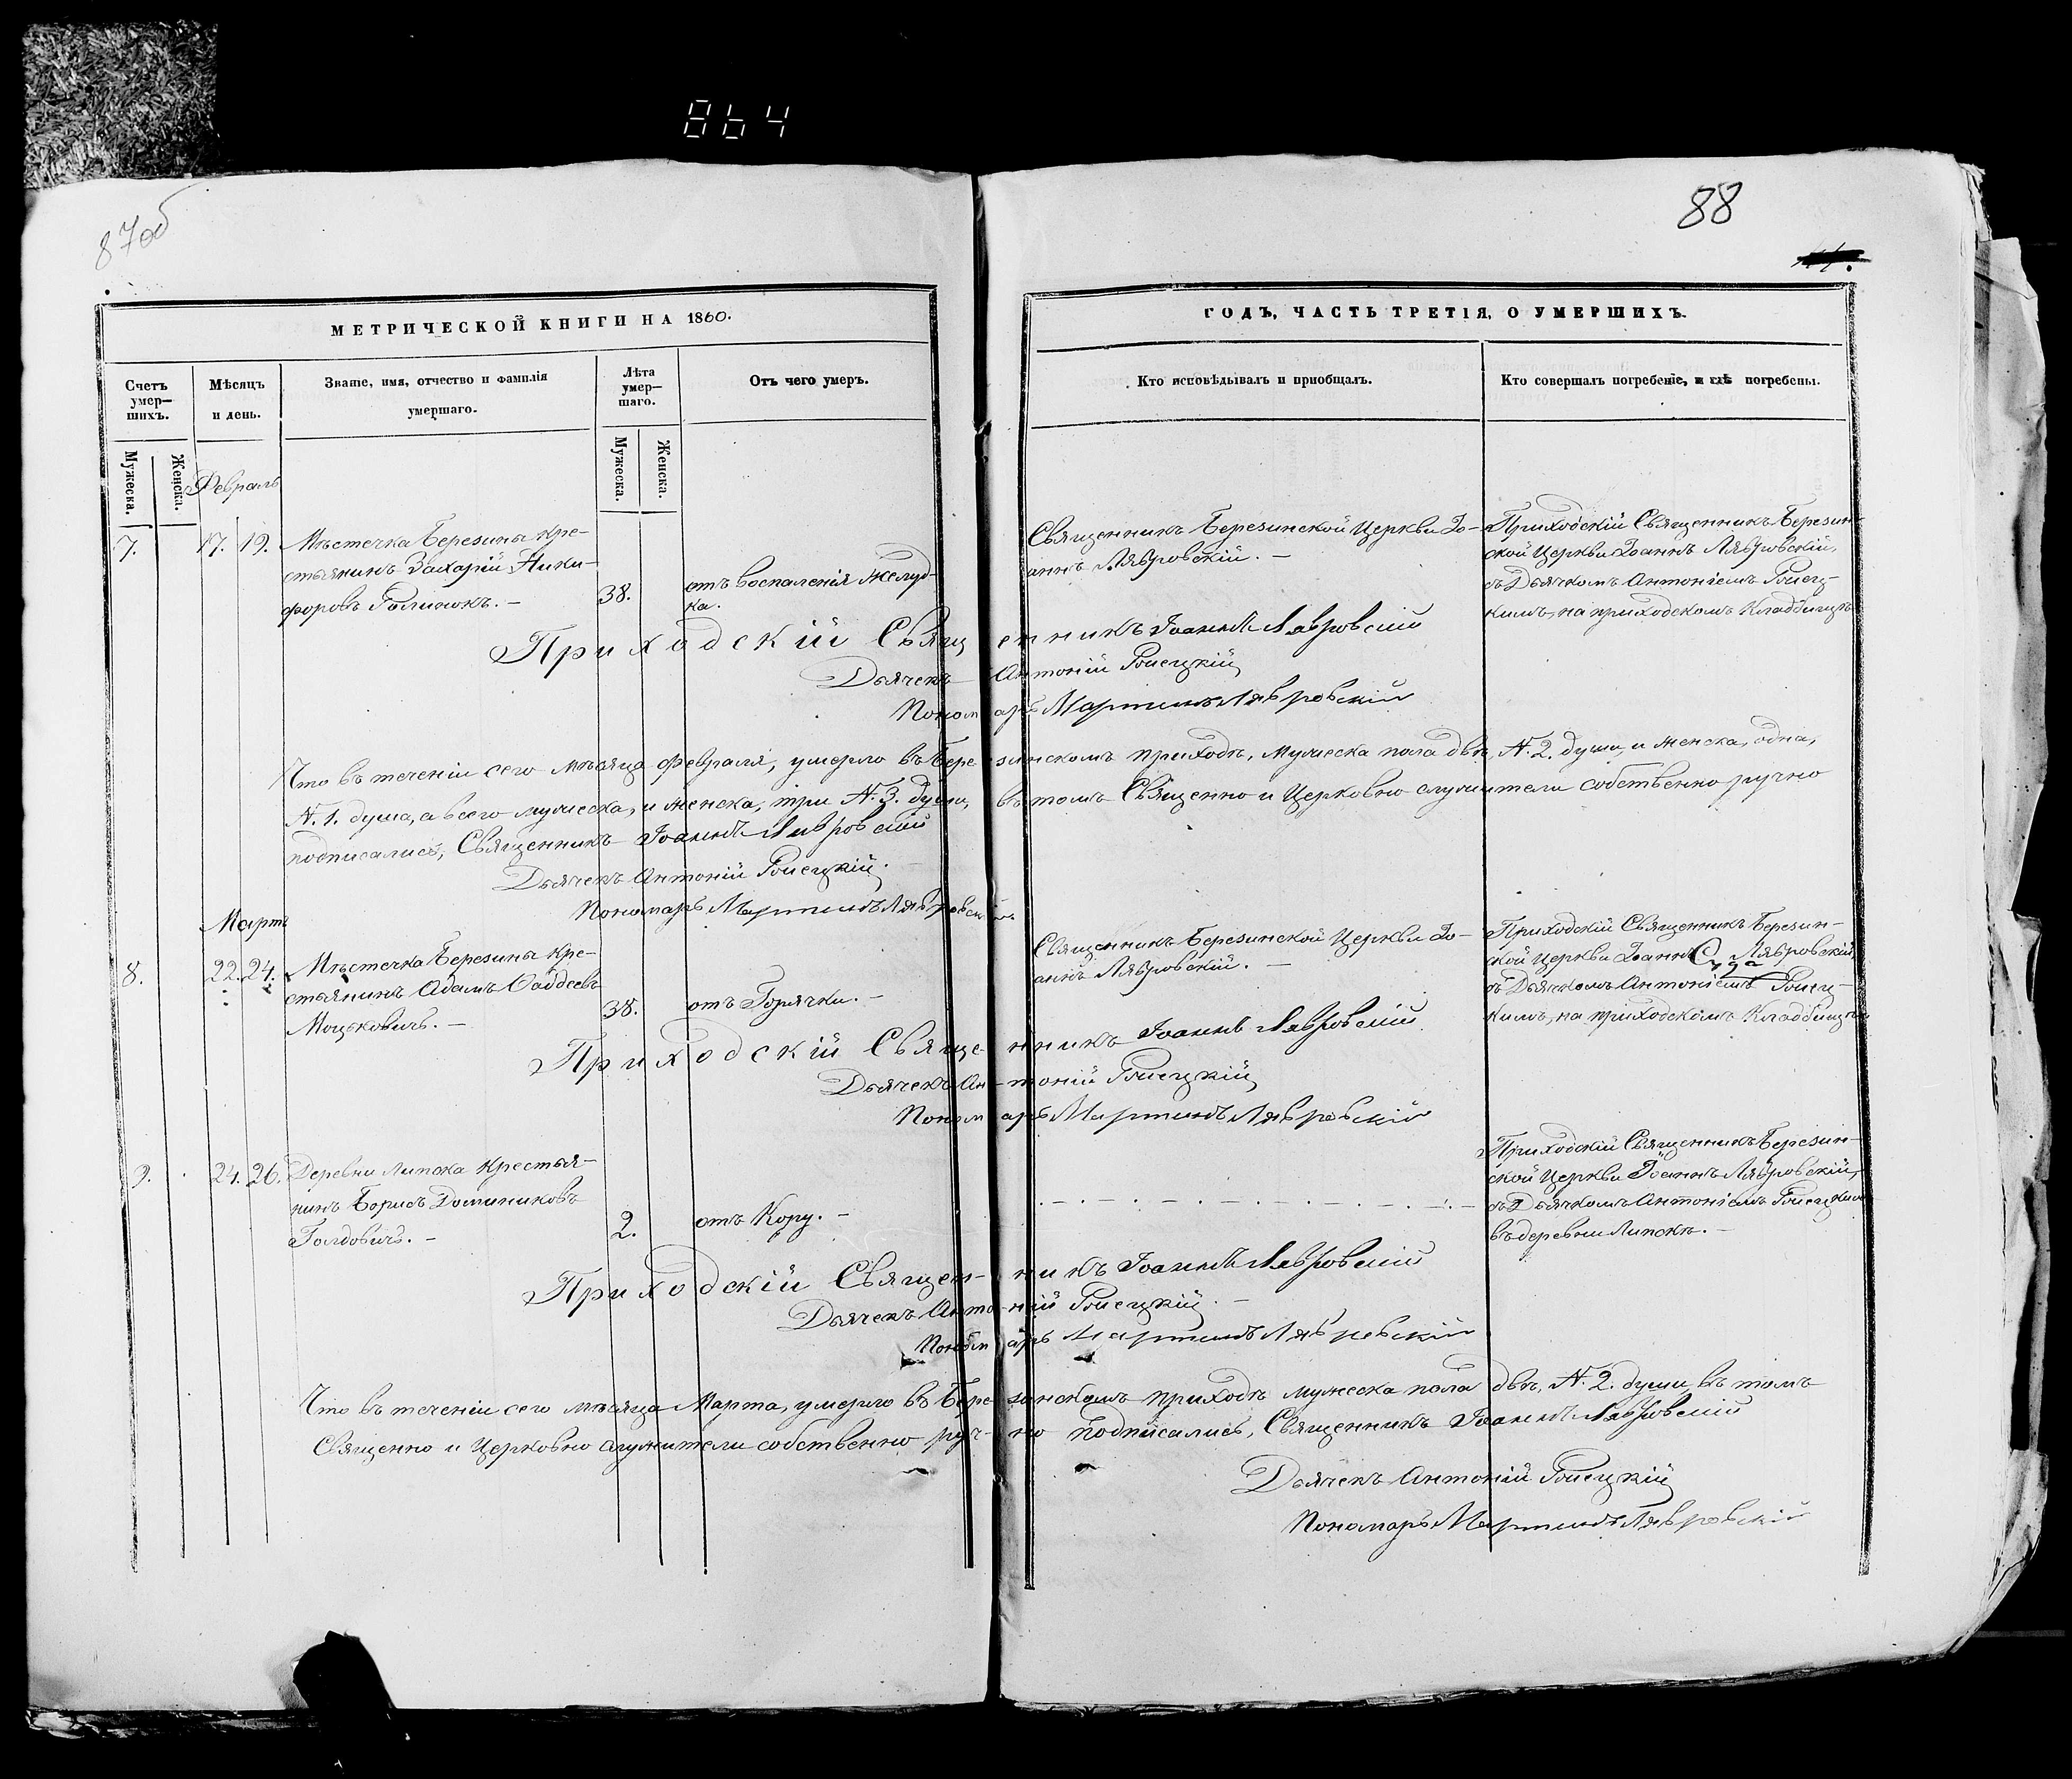 864
87 об
88
МЕТРИЧЕСКОЙ КНИГИ НА 1860.
ГОДЪ, ЧАСТЬ ТРЕТІЯ, О УМЕРШИХЪ.
Счетъ умер—шихъ.
Мѣсяцъ и день.
Званіе, имя, отчество и фамилія умершаго.
Лѣта умер—шаго.
Отъ чего умеръ.
Кто исповѣдывалъ и пріобщалъ.
Кто совершалъ погребеніе, и гдѣ погребены.
Мужеска.
Женска.
Мужеска.
Женска.
Февраль
7. 17. 19.
Мѣстечка Березины кре-
стьянинъ Захарій Ники-
форовъ Галинокъ. —
38.
отъ воспаленія желуд-
ка.
Священникъ Березинской Церкви Іо-
аннъ Лавровскій. —
Приходскій Священникъ Березин-
ской Церкви Іоаннъ Лавровскій,
съ Дьячкомъ Антоніемъ
кимъ, на приходскомъ Кладбищѣ
Приходскій Священникъ Іоаннъ Лавровскій
Дьячекъ Антоній
Пономарь Мартинъ Лавровскій
Что въ теченіи сего мѣсяца февраля, умерло въ Березинскомъ приходѣ, мужеска пола двѣ, №. 2. души, и женска, одна,
№. 1. душа, а всего мужеска, и женска, три №. 3. души, въ томъ Священно и Церковно служители собственно ручно
подписались, Священникъ Іоаннъ Лавровскій
Дьячекъ Антоній
Пономарь Мартинъ Лавровскій
Мартъ
8. 22. 24.
Мѣстечка Березины кре-
стьянинъ Адамъ Фаддеевъ
Моцьковичъ. —
38.
отъ Горячки. —
Священникъ Березинской Церкви Іо-
аннъ Лавровскій. —
Приходскій Священникъ Березин-
ской Церкви Іоаннъ Лавровскій
съ Дьячкомъ Антоніемъ
кимъ, на приходскомъ Кладбищѣ
Приходскій Священникъ Іоаннъ Лавровскій
Дьячекъ Антоній
Пономарь Мартинъ Лавровскій
9. 24. 26.
Деревни Липска Крестья-
нинъ Борисъ Доминиковъ
Голдовичъ. —
2.
отъ Кору. —
Приходскій Священникъ Березин-
ской Церкви Іоаннъ Лавровскій,
съ Дьячкомъ Антоніемъ
въ деревни Липскѣ. —
Приходскій Священникъ Іоаннъ Лавровскій
Дьячекъ Антоній
Пономарь Мартинъ Лавровскій
Что въ теченіи сего мѣсяца Марта, умерло въ Березинскомъ приходѣ мужеска пола двѣ, №. 2. души, въ томъ
Священно и Церковно служители собственно ручно подписались, Священникъ Іоаннъ Лавровскій
Дьячекъ Антоній
Пономарь Мартинъ Лавровскій